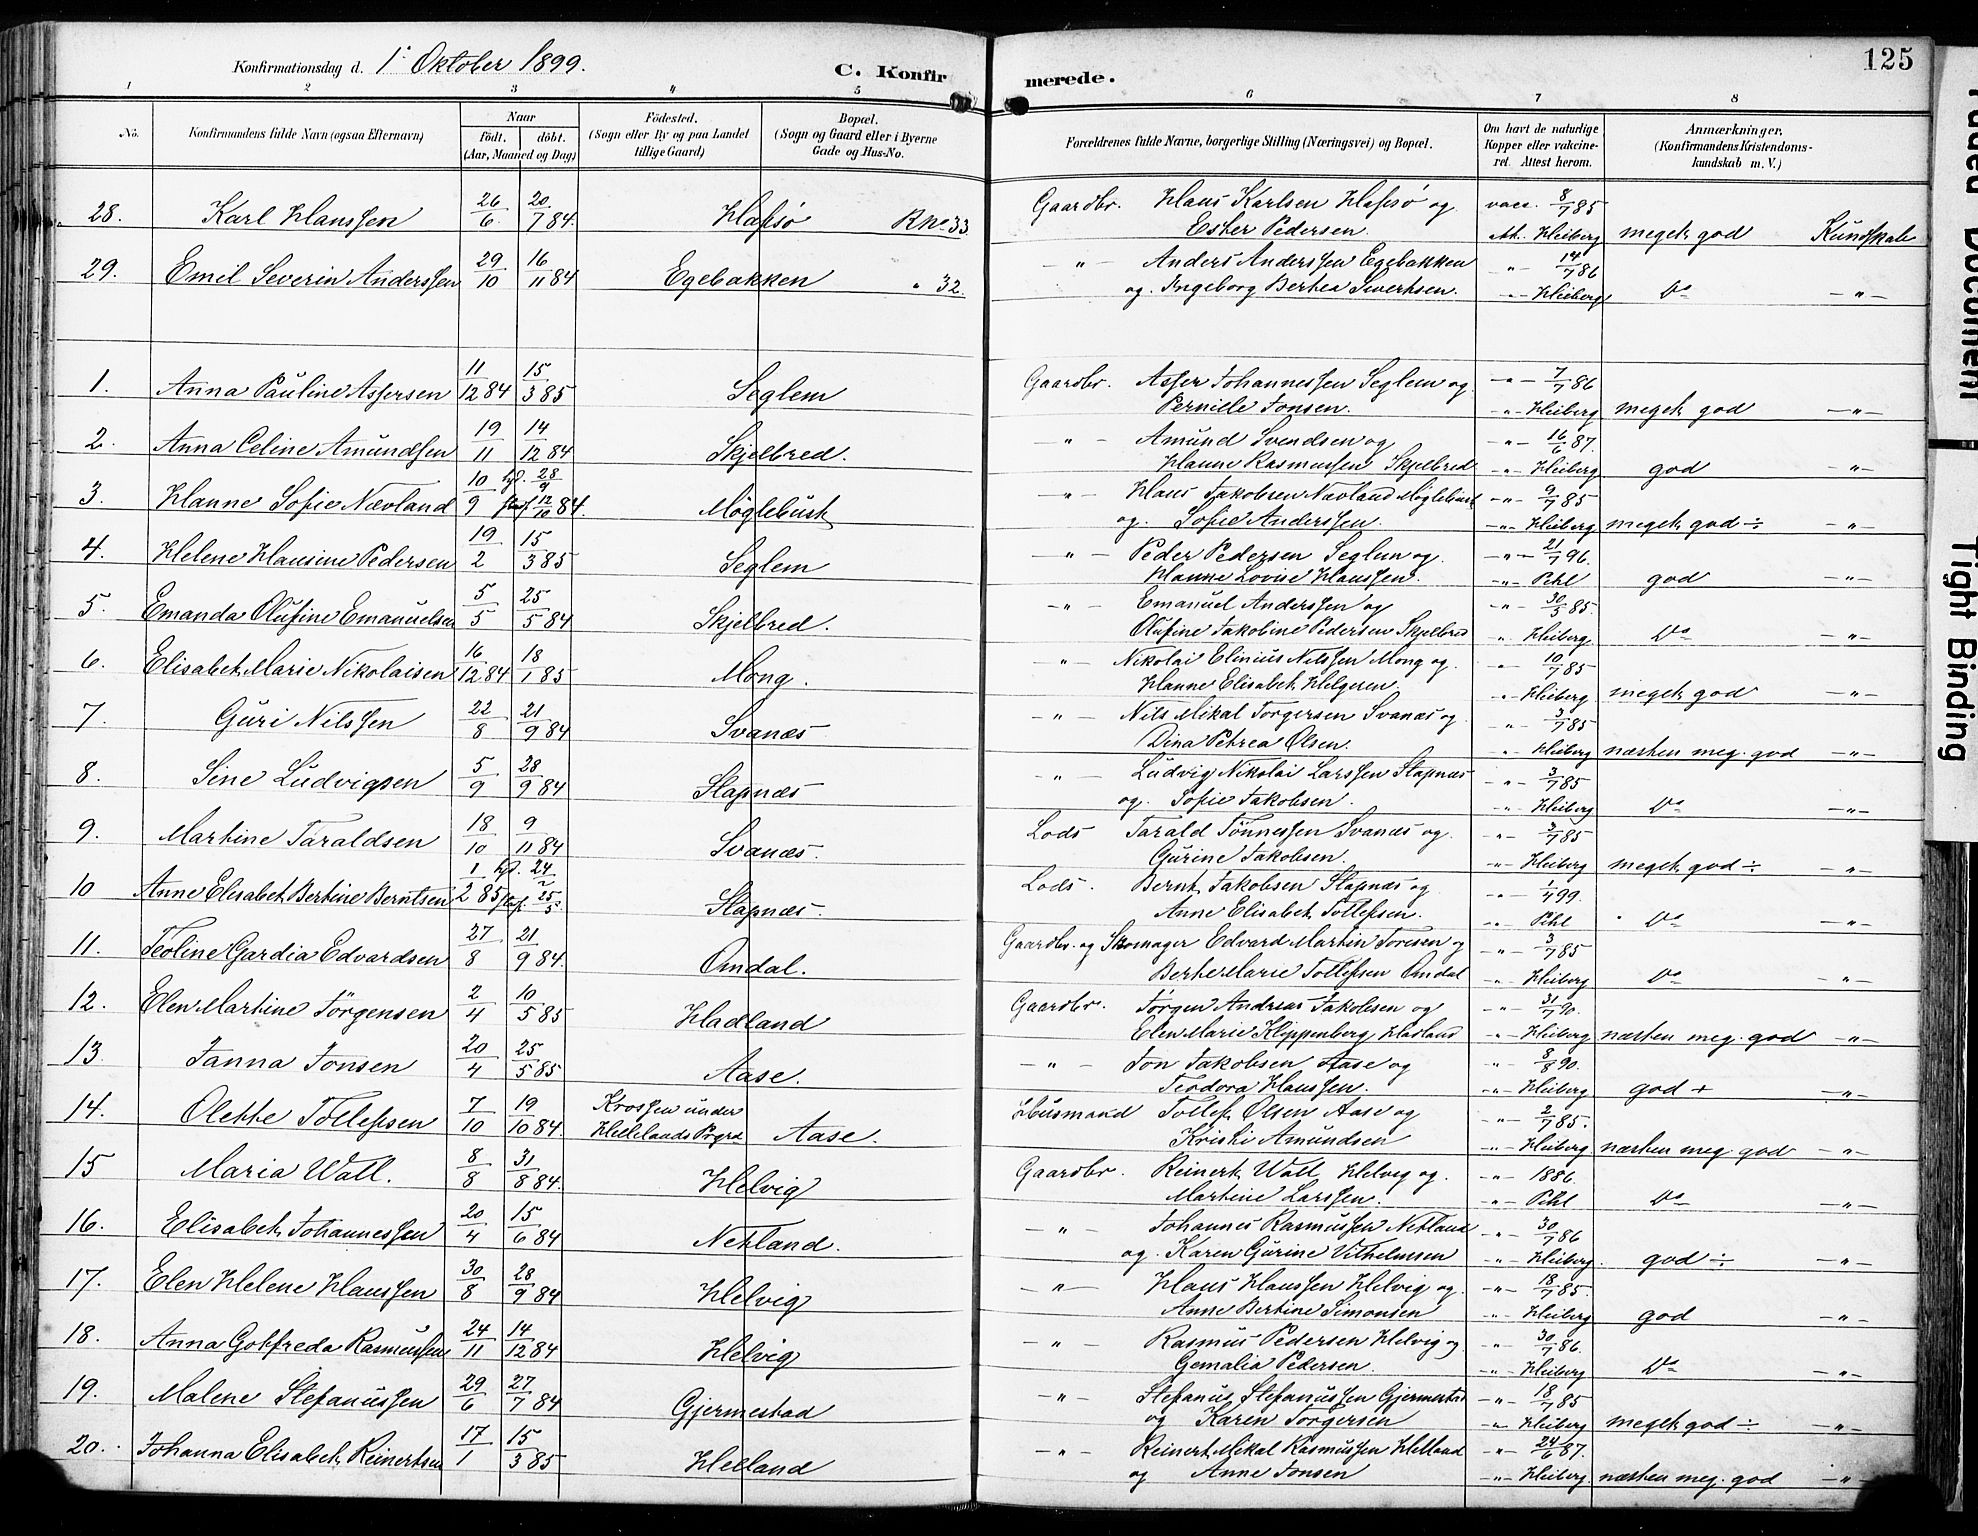 Konfirmationsdag d. 1. Oktober 1899.
C. Konfirmerede.
125
1 2 3 4 5 6 7 8
No. Konfirmandens fulde Navn (ogsaa Efternavn) Naar født. døbt. (Aar, Maaned og Dag) Fødested. (Sogn eller By og paa Landet tillige Gaard) Bopæl. (Sogn og Gaard eller i Byerne Gade og Hus-No. Forældrenes fulde Navne, borgerlige Stilling (Næringsvei) og Bopæl. Om havt de naturlige Kopper eller vakcineret. Attest herom. Anmærkninger. (Konfirmandens Kristendomskundskab m. V.)
28. Karl Hanssen 26/6 20/7 84. Hafsø Rno 33 Gaardbr. Hans Karlsen Hafsø og vacc. 8/7 85
Ester Pedersen. Att. Heiberg meget god Kundskab
29. Emil Severin Anderssen 29/10 16/11 84 Egebakken " 32. — " — Anders Anderssen Egebakken — " — 14/7 86
og Ingeborg Bertea Sivertsen. — " — Heiberg Do — " —
1. Anna Pauline Assersen 11/12 84 15/3 85 Seglem Gaardbr. Asser Johannessen Seglem og — " — 7/7 86
Pernille Jonsen. — " — Heiberg meget god — " —
2. Anna Celine Amundsen 19/11 14/12 84 Skjelbred. — " — Amund Svendsen og — " — 16/6 87.
Hanne Rasmussen Skjelbred — " — Heiberg god — " —
3. Hanne Sofie Nævland 10/9 hjd. 28/9 stadf. 12/10 84. Møglebust — " — Hans Jakobsen Nævland Møglebust — " — 9/7 85
og Sofie Anderssen. — " — Heiberg meget god ÷ — " —
4. Helene Hansine Pedersen 19/2 15/3 85 Seglem — " — Peder Pedersen Seglem og — " — 21/7 96.
Hanne Lovise Hanssen. — " — Pihl god — " —
5. Emanda Olufine Emanuelsen 5/5 25/5 84 Skjelbred. — " — Emanuel Anderssen og — " — 30/5 85
Olufine Jakobine Pedersen Skjelbred " Heiberg Do — " —
6. Elisabet Marie Nikolaisen 16/12 84 18/1 85 Mong. — " — Nikolai Elinius Nilssen Mong og — " — 10/7 85
Hanne Elisabet Helgesen. " Heiberg meget god — " —
7. Guri Nilssen 22/8 21/9 84 Svanæs — " — Nils Mikal Torgersen Svanæs og — " — 3/7 85
Dina Petrea Olsen. " Heiberg næsten meg. god — " —
8. Sine Ludvigsen 5/9 28/9 84 Stapnæs — " — Ludvig Nikolai Larssen Stapnæs — " — 3/7 85
og Sofie Jakobsen. — " — Heiberg Do — " —
9. Martine Taraldsen 18/10 9/11 84 Svanæs. Lods Tarald Tønnessen Svanæs og — " — 3/7 85
Gurine Jakobsen. — " — Heiberg meget god ÷ — " —
10 Anne Elisabet Bertine Berntsen 1/2 85 hjd. 24/2 stadf. 25/5 Stapnæs. Lods. Bernt Jakobsen Stapnæs og — " — 1/4 99.
Anne Elisabet Tollefsen. — " — Pihl Do — " —
11. Teoline Gardia Edvardsen 27/8 21/9 84. Omdal. Gaardbr. og Skomager Edvard Martin Toresen og — " — 3/7 85
Berte Marie Tollefsen Omdal — " — Heiberg Do — " —
12. Elen Martine Jørgensen 2/4 10/5 85 Hadland Gaardbr. Jørgen Andreas Jakobsen og — " — 31/7 90.
Elen Marie Klippenberg Hadland — " — Heiberg næsten meg. god — " —
13. Janna Jonsen 20/4 25/5 85 Aase. — " — Jon Jakobsen Aase og " 8/8 90.
Teodora Hanssen. — " — Heiberg god + — " —
14. Olette Tollefsen 7/10 19/10 84. Krossen under Hellelands Prgrd Aase. Husmand Tollef Olsen Aase og — " — 2/7 85.
Kristi Amundsen — " — Heiberg næsten meg. god — " —
15 Maria Wall. 8/8 31/8 84. Helvig Gaardbr. Reinert Wall Helvig og — " — 1886.
Martine Larssen. — " — Pihl Do — " —
16. Elisabet Johannessen 20/4 15/6 84 Netland. — " — Johannes Rasmussen Netland — " — 30/7 86
og Karen Gurine Vilhelmsen — " — Heiberg. god ÷ — " —
17. Elen Helene Hanssen 30/8 28/9 84 Helvig — " — Hans Hanssen Helvig og — " — 18/7 85.
Anne Bertine Simonsen — " — Heiberg god — " —
18. Anna Gotfreda Rasmussen 24/11 14/12 84 Helvig — " — Rasmus Pedersen Helvig og — " — 30/7 86.
Gemalia Pedersen. — " — Heiberg Do — " —
19. Malene Stefanussen 29/6 27/7 84 Gjermestad — " — Stefanus Stefanussen Gjermestad — " — 18/7 85
og Karen Torgersen — " — Heiberg meget god ÷ — " —
20. Johanna Elisabet Reinertsen 17/1 15/3 85 Helland — " — Reinert Mikal Rasmussen Helland — " — 24/6 87.
og Anne Jonsen — " — Heiberg. næsten meg. god — " —
Faded Document
Tight Binding